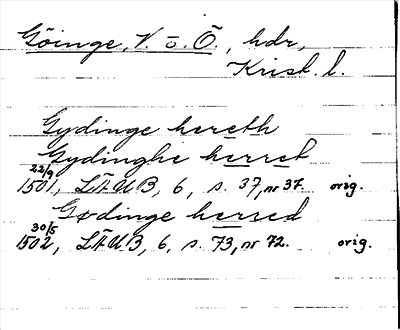 Göinge, V. o. Ö., hdr,
Krist. l.
Gydinge hereth
Gydinghe herret
22/9
1501, LÄUB, 6, s. 37, nr 37. orig.
Gødinge hersed
30/5
1502, LÄUB, 6, s. 73, nr 72. orig.